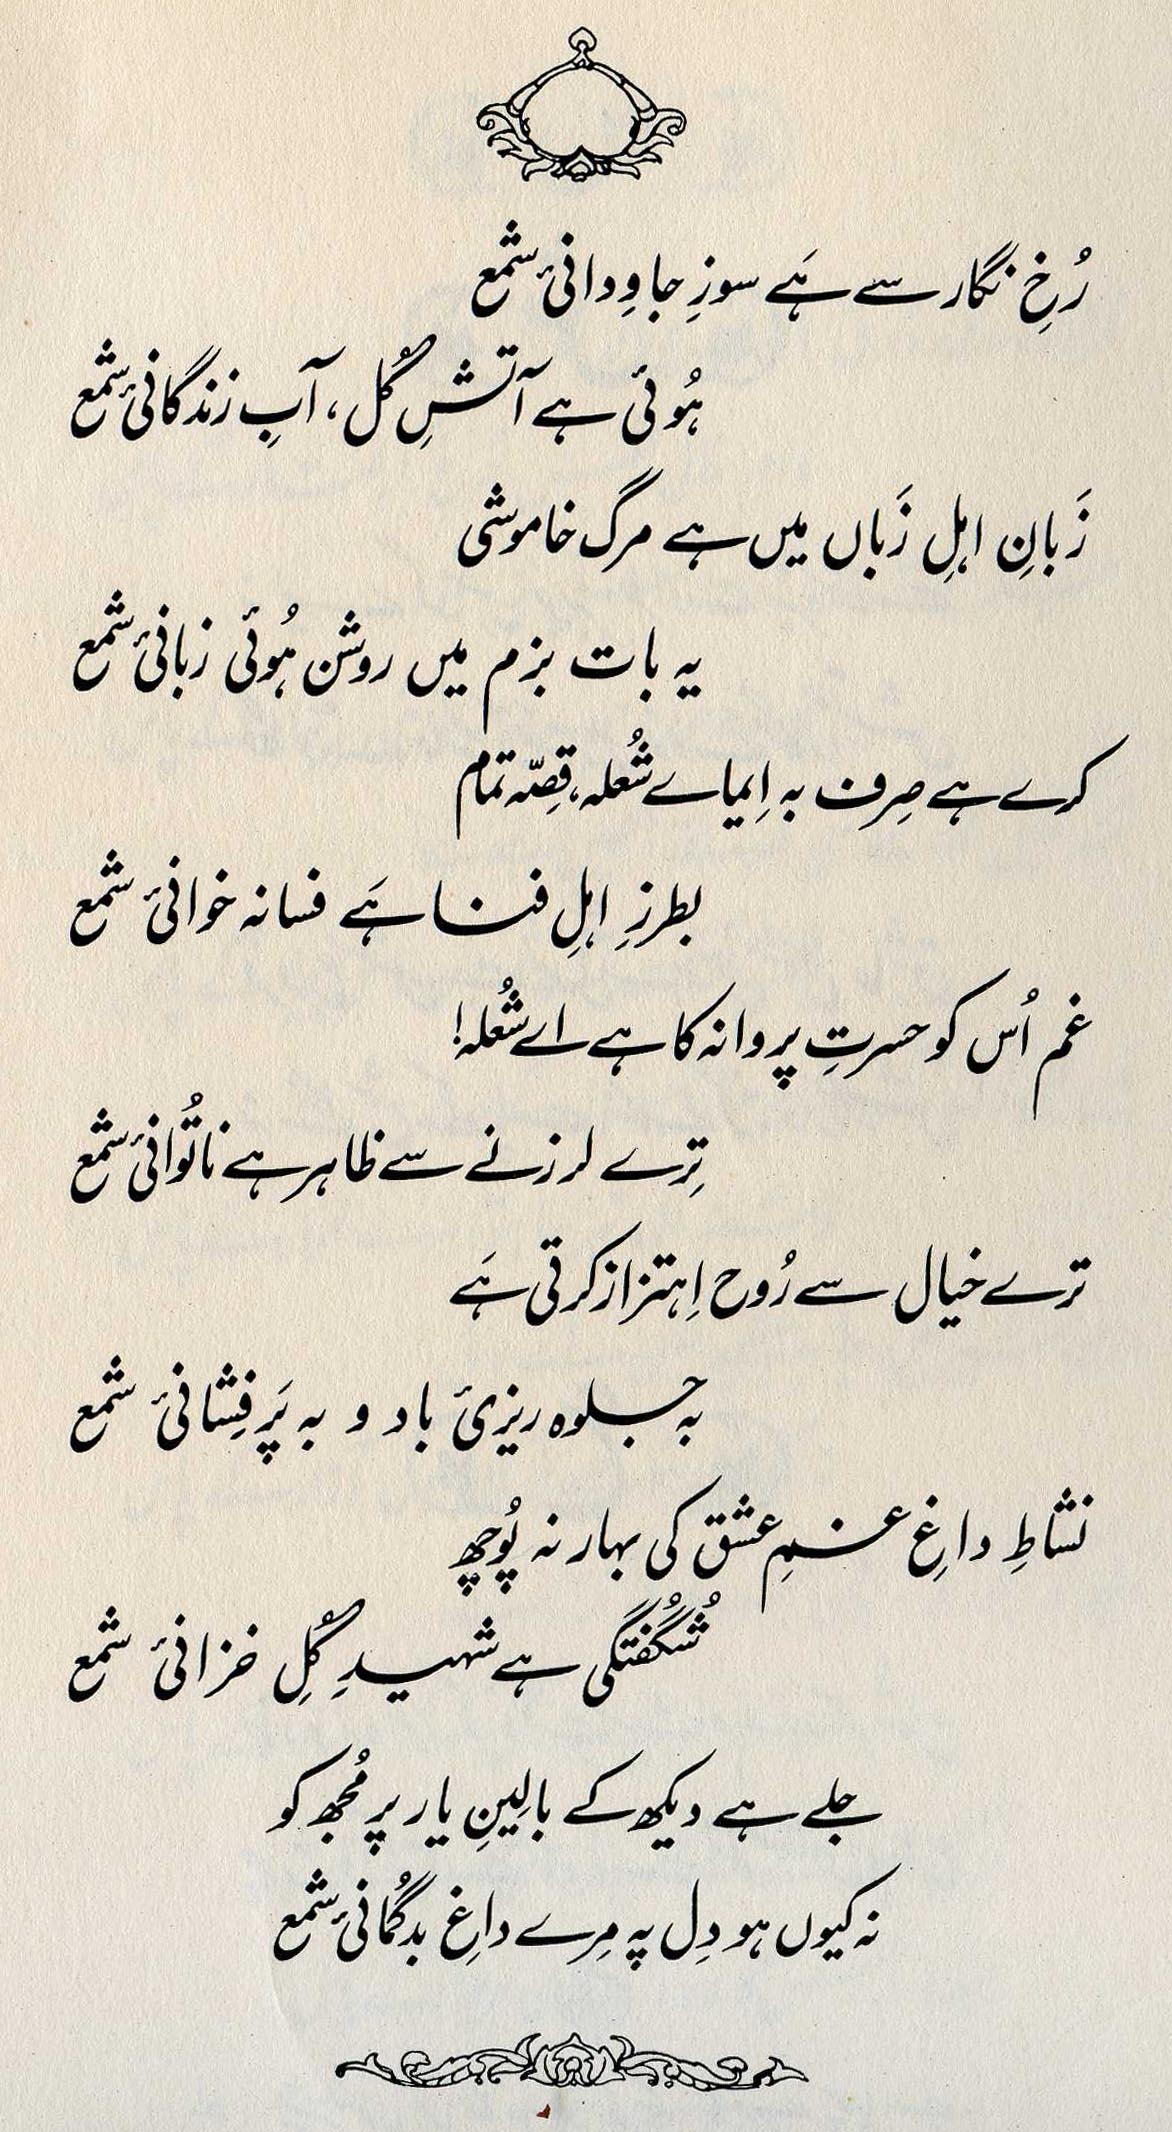 رُخِ نگار سے ہَے سوزِ جاوِدانیٔ شمع
ہُوئی ہے آتشِ گُل، آبِ زندگانیٔ شمع
زَبانِ اہلِ زَباں میں ہے مرگ خاموشی
یہ بات بزم میں روشن ہُوئی زبانیٔ شمع
کرے ہے صِرف بہ اِیماے شُعلہ، قصِّہ تمام
بطرزِ اہلِ فنا ہَے فسانہ خوانیٔ شمع
غم اُس کو حسرتِ پروانہ کا ہے اے شُعلہ!
تِرے لرزنے سے ظاہر ہے ناتُوانیٔ شمع
ترے خیال سے رُوح اِہتزاز کرتی ہَے
بہ جلوہ ریزیٔ باد و بہ پَرفِشانیٔ شمع
نشاطِ داغِ غمِ عشق کی بہار نہ پُوچھ
شُگُفتگی ہے شہیدِ گُلِ خزانیٔ شمع
جلے ہے دیکھ کے بالِینِ یار پر مُجھ کو
نہ کیوں ہو دِل پہ مِرے داغِ بدگُمانیٔ شمع